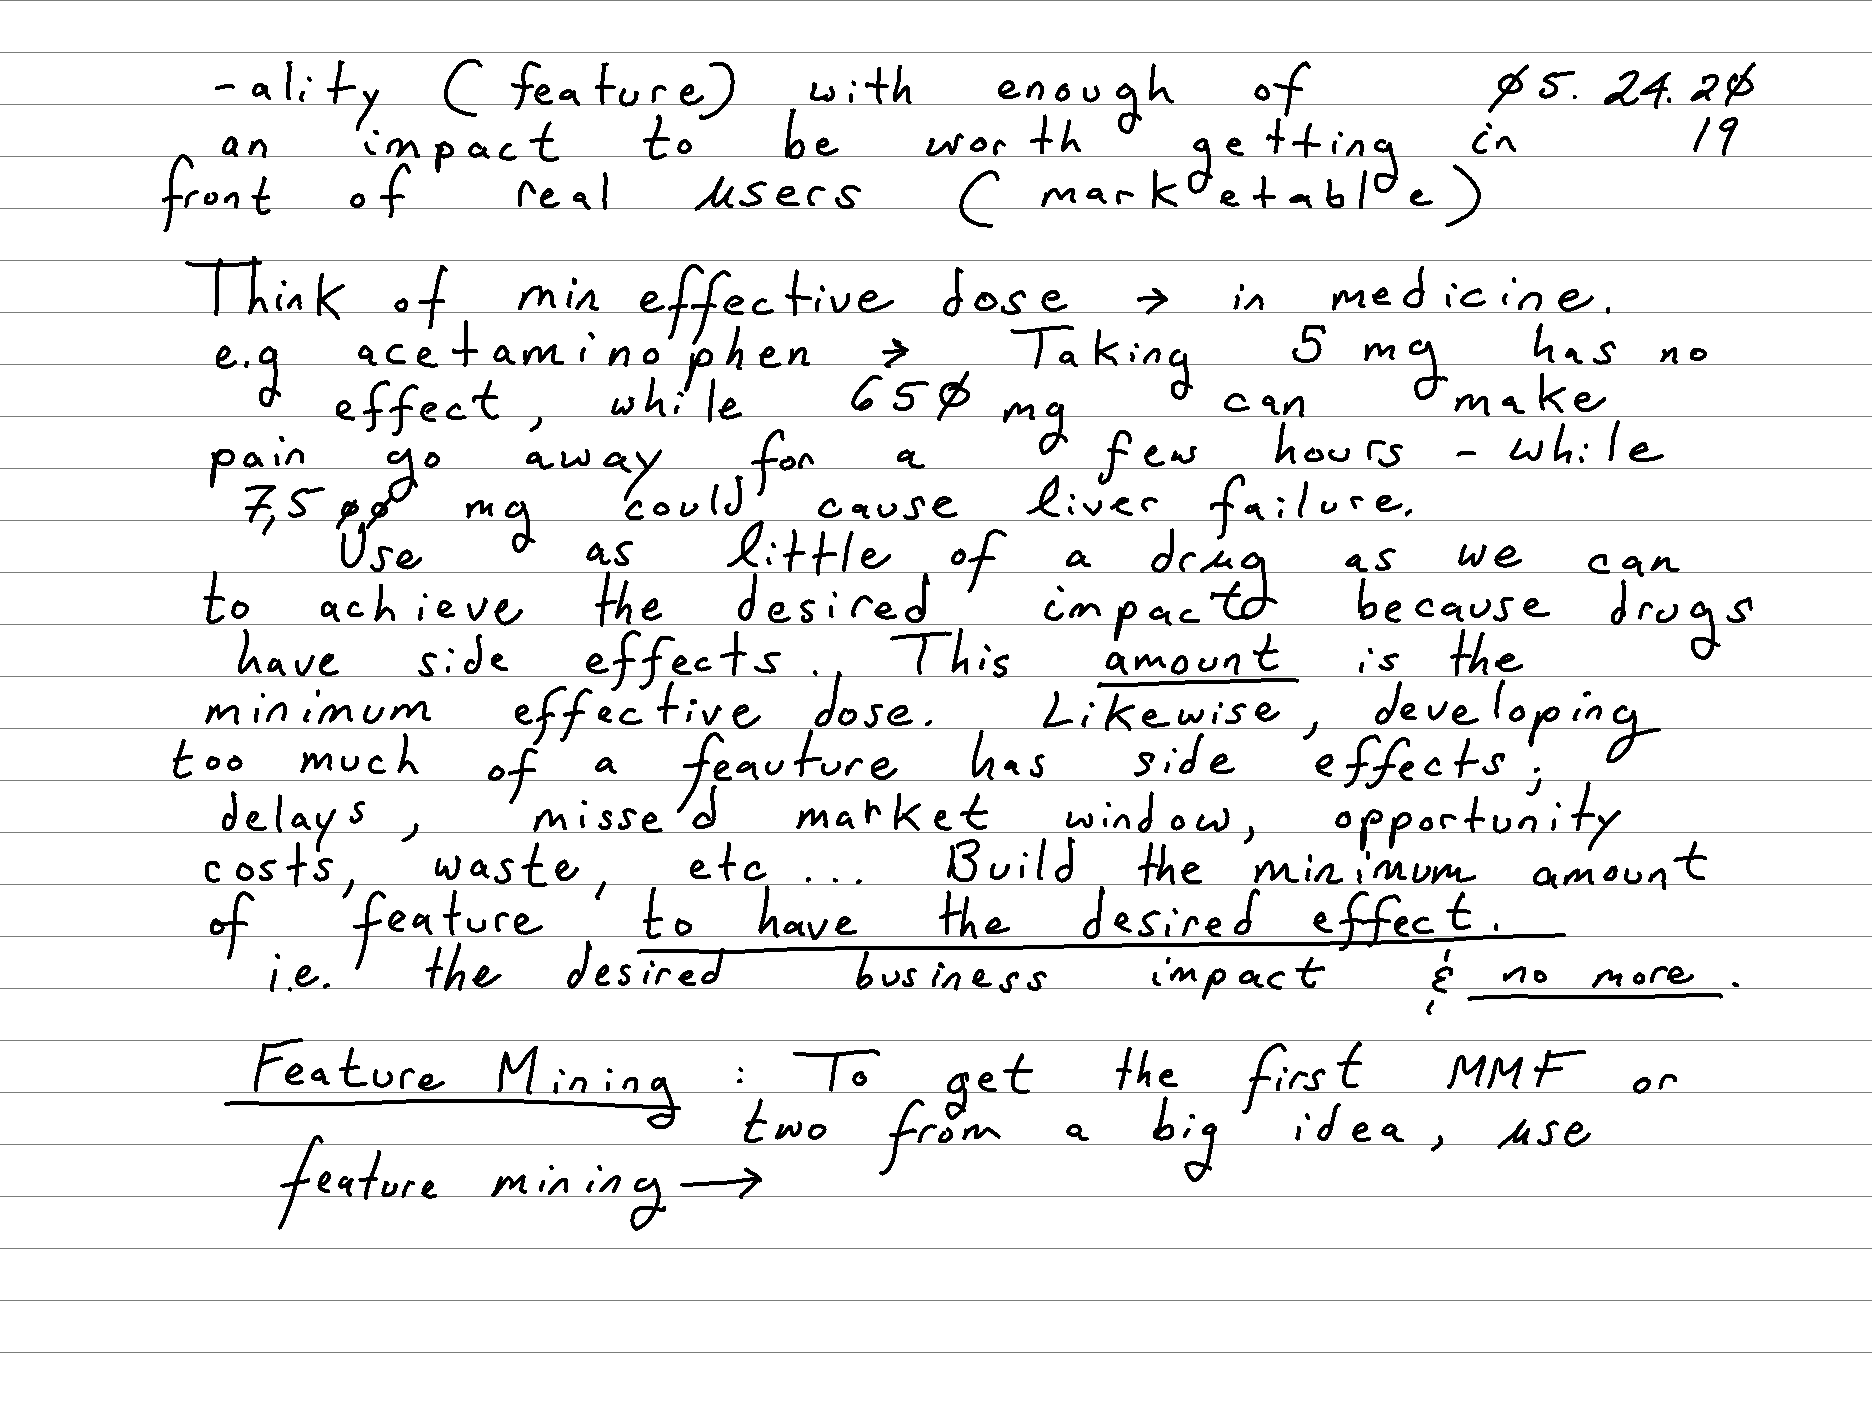 -ality (feature) with enough of 05.24.20
an impact to be worth getting in 19
front of real users (marketable)
Think of min effective dose → in medicine.
e.g acetaminophen → Taking 5 mg has no
effect, while 650 mg can make
pain go away for a few hours - while
7,500 mg could cause liver failure.
Use as little of a drug as we can
to achieve the desired impact because drugs
have side effects. This amount is the
minimum effective dose. Likewise, developing
too much of a feauture has side effects;
delays, missed market window, opportunity
costs, waste, etc ... Build the minimum amount
of feature to have the desired effect.
i.e. the desired business impact & no more.
Feature Mining : To get the first MMF or
two from a big idea, use
feature mining →